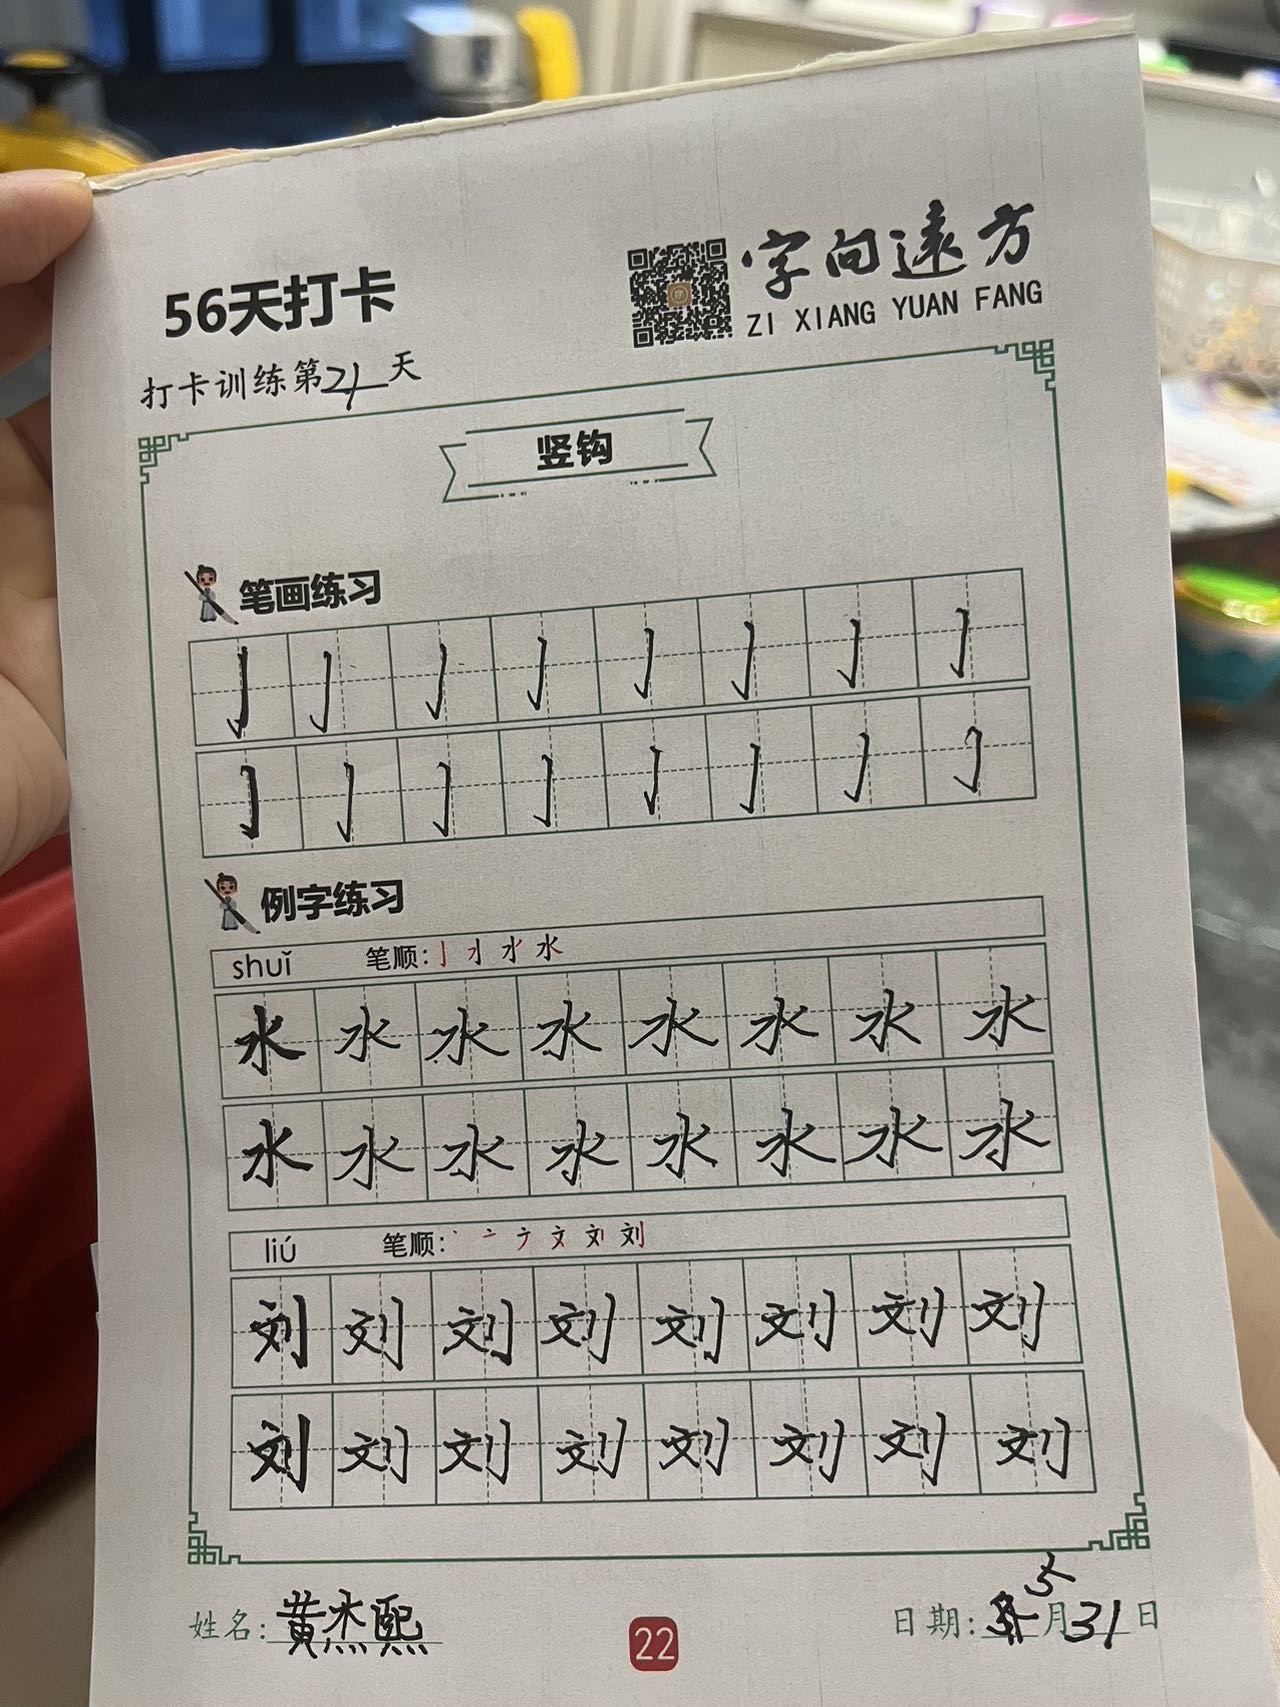 56天打卡
字向遠方
ZI XIANG YUAN FANG
打卡训练第21天
竖钩
笔画练习
亅亅亅亅亅亅亅亅
亅亅亅亅亅亅亅亅
例字练习
shuǐ 笔顺: 水
水水水水水水水水
水水水水水水水水
liú 笔顺: 丶亠ナ文刘刘
刘刘刘刘刘刘刘刘
刘刘刘刘刘刘刘刘
姓名: 黄杰熙
22
日期: 5月31日